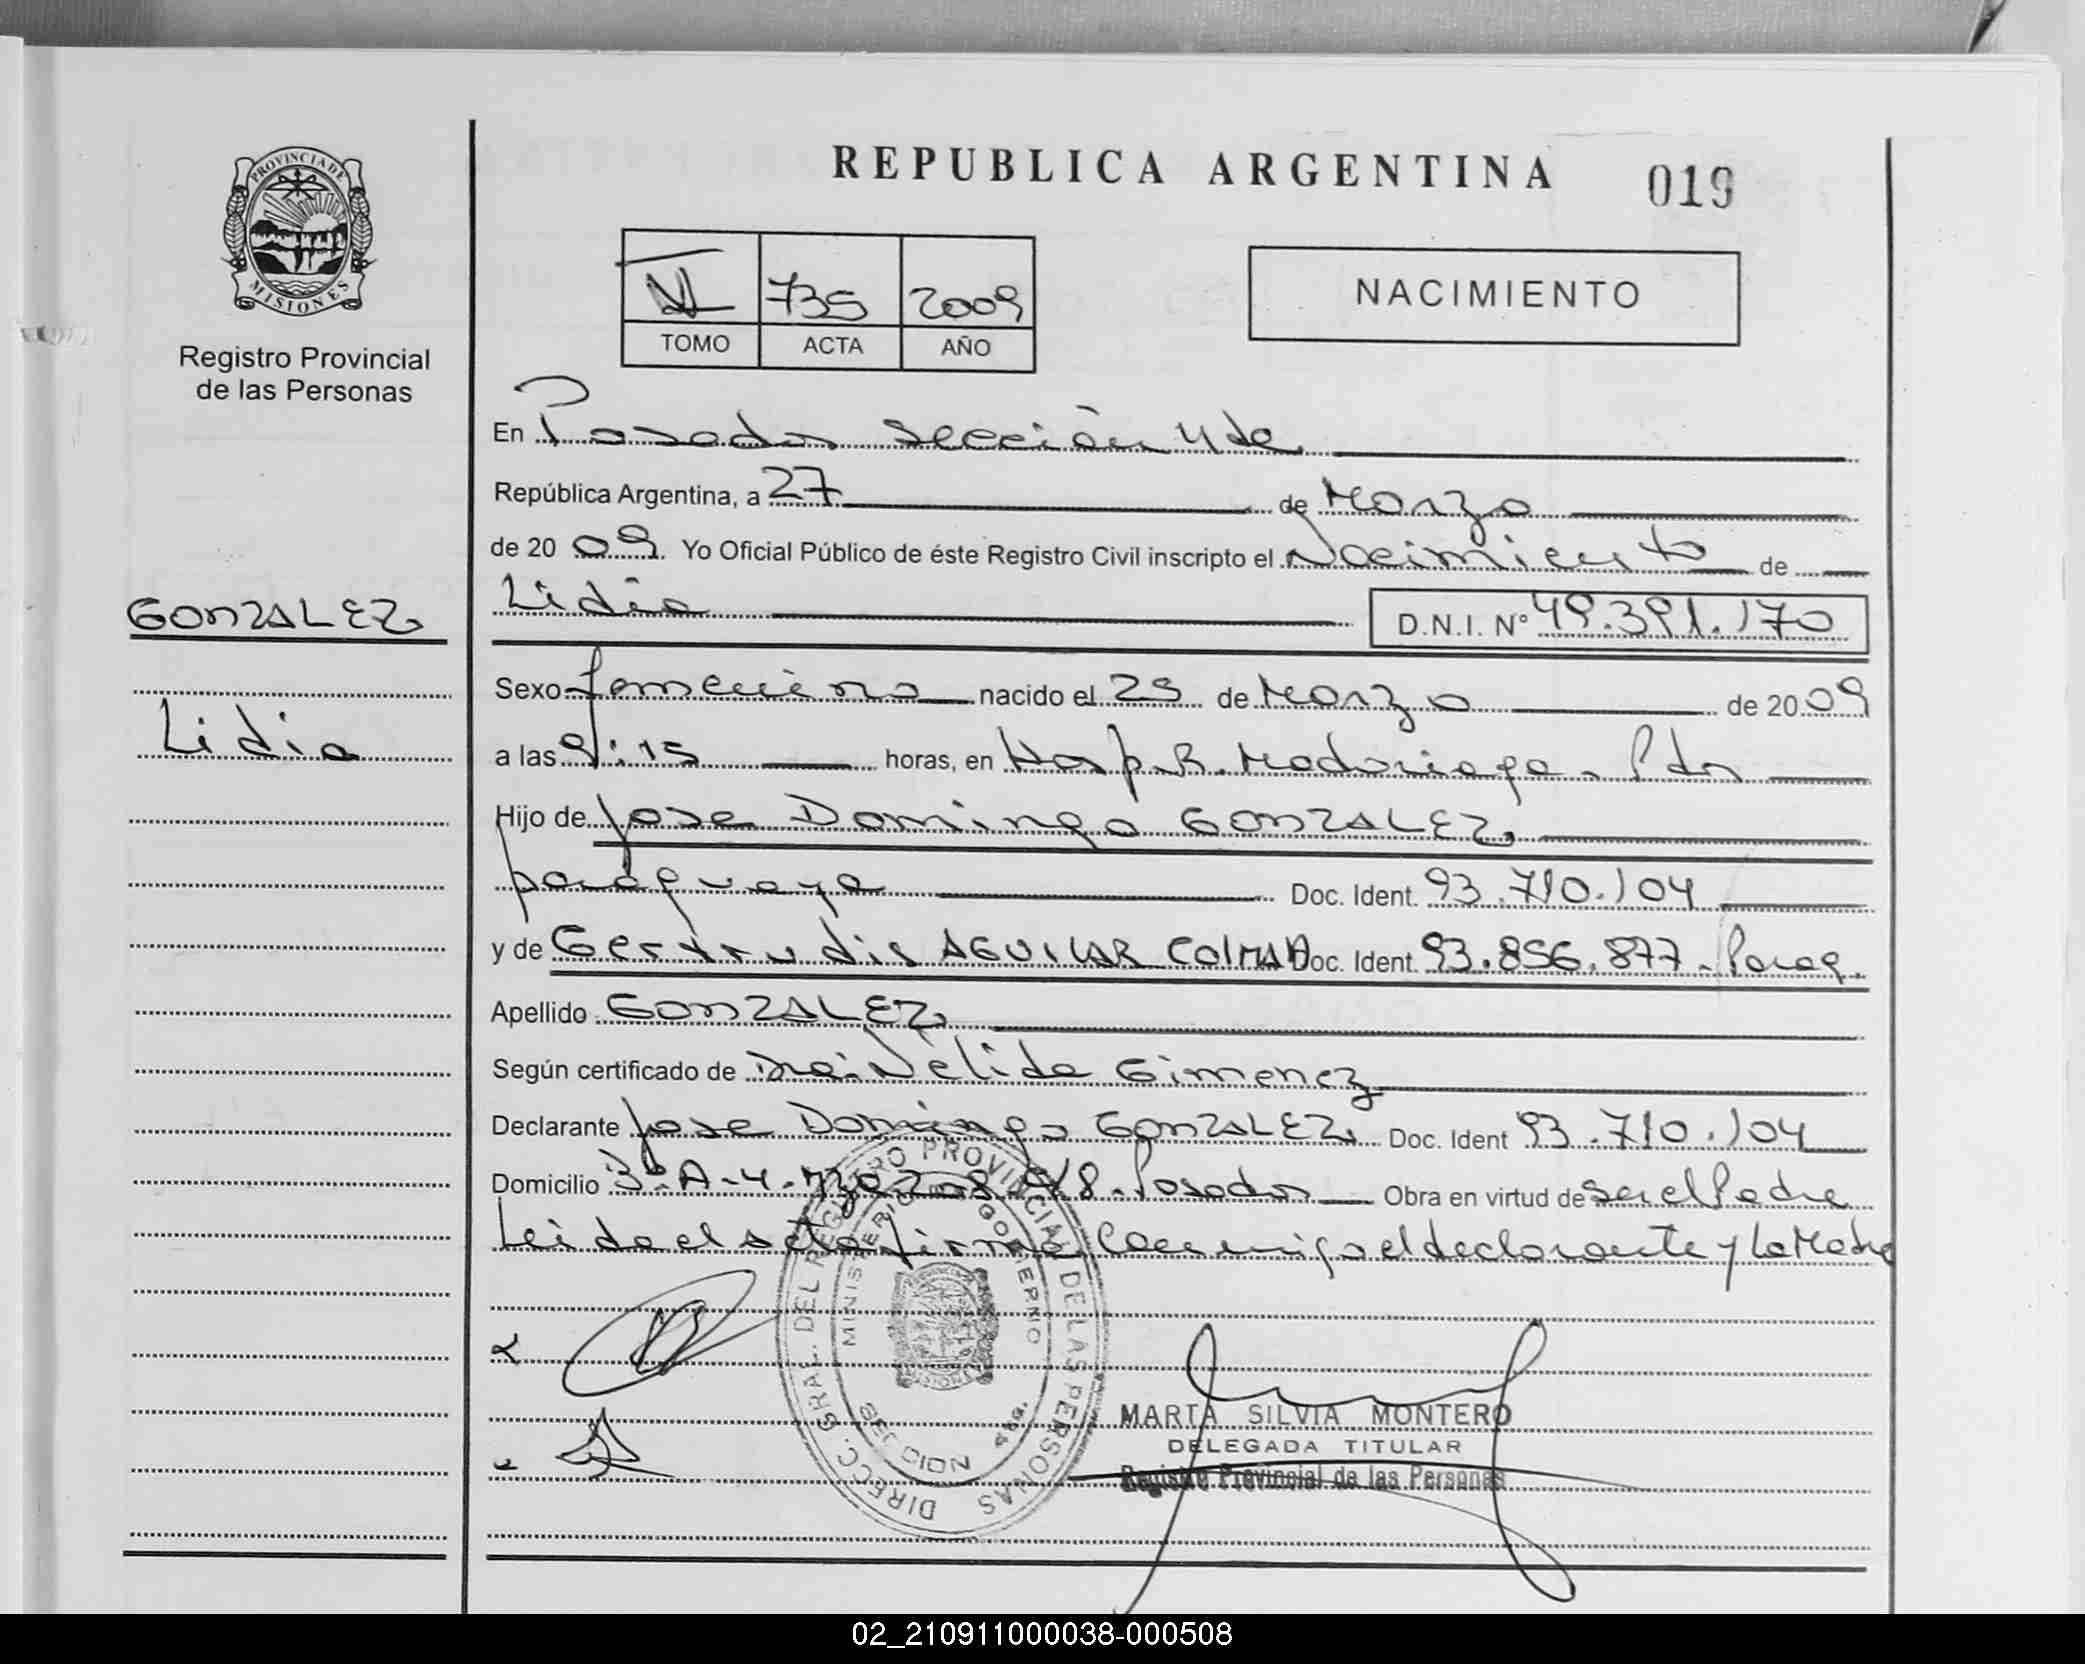 REPUBLICA ARGENTINA 019
PROVINCIA DE MISIONES
Registro Provincial
de las Personas
735 2009
TOMO ACTA AÑO
NACIMIENTO
En Posadas sección 4ta
República Argentina, a 27 de Marzo
de 2009 Yo Oficial Público de éste Registro Civil inscripto el Nacimiento de
GONZALEZ
Lidia
Lidia D.N.I. N° 49.391.170
Sexo femenino nacido el 25 de Marzo de 2009
a las 9:15 horas, en Hosp. R. Madariaga - Pdas
Hijo de Jose Domingo GONZALEZ,
paraguaya Doc. Ident. 93.710.104
y de Gertrudis AGUILAR COLMAN Doc. Ident. 93.856.877 - Parag.
Apellido GONZALEZ
Según certificado de Dra. Nélida Gimenez
Declarante Jose Domingo GONZALEZ, Doc. Ident 93.710.104
Domicilio Posadas Obra en virtud de ser el Padre
Leida el acta firma conmigo el declarante y la Madre
DIRECC. GRAL. DEL REGISTRO PROVINCIAL DE LAS PERSONAS
MINISTERIO GOBIERNO
MISIONES
MARTA SILVIA MONTERO
DELEGADA TITULAR
Registro Provincial de las Personas
02_210911000038-000508